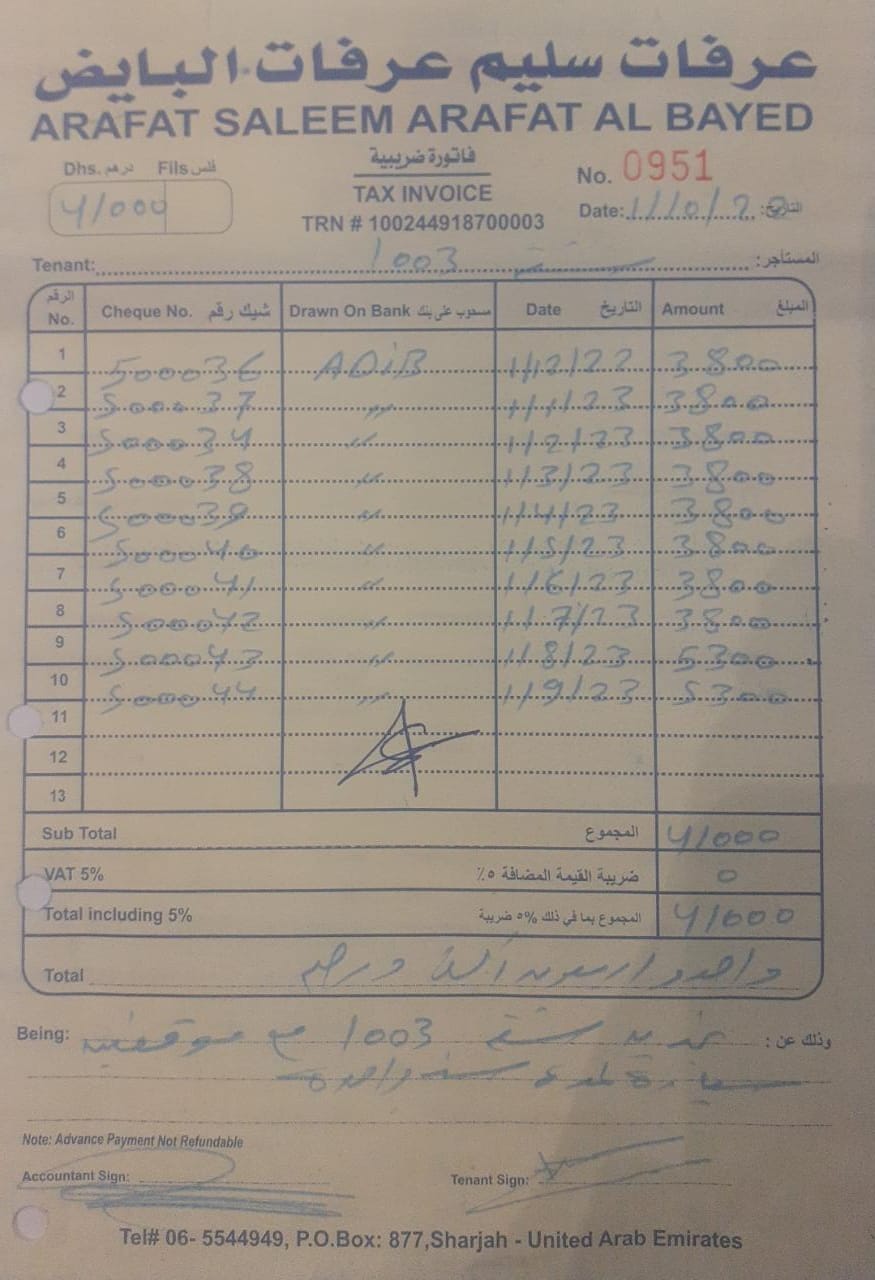 عرفات سليم عرفات البايض
ARAFAT SALEEM ARAFAT AL BAYED
فاتورة ضريبية
Dhs. درهم Fils فلس
TAX INVOICE
No. 0951
41000
TRN # 100244918700003
Date: 1/10/22 التاريخ:
Tenant: 1003 شقة المستأجر:
الرقم No. Cheque No. شيك رقم Drawn On Bank مسحوب على بنك Date التاريخ Amount المبلغ
1 500036 ADIB 1/12/22 3800
2 500037 〃 1/1/23 3800
3 500034 〃 1/2/23 3800
4 500038 〃 1/3/23 3800
5 500039 〃 1/4/23 3800
6 500040 〃 1/5/23 3800
7 500041 〃 1/6/23 3800
8 500042 〃 1/7/23 3800
9 500043 〃 1/8/23 5300
10 500044 〃 1/9/23 5300
11
12
13
Sub Total المجموع 41000
VAT 5% ضريبة القيمة المضافة ٥٪ 0
Total including 5% المجموع بما في ذلك ٥% ضريبة 41000
Total واحد و اربعون الف درهم
Being: تجديد شقة 1003 مع موقف وذلك عن:
سيارة لمدة سنة واحدة
Note: Advance Payment Not Refundable
Accountant Sign: Tenant Sign:
Tel# 06- 5544949, P.O.Box: 877,Sharjah - United Arab Emirates